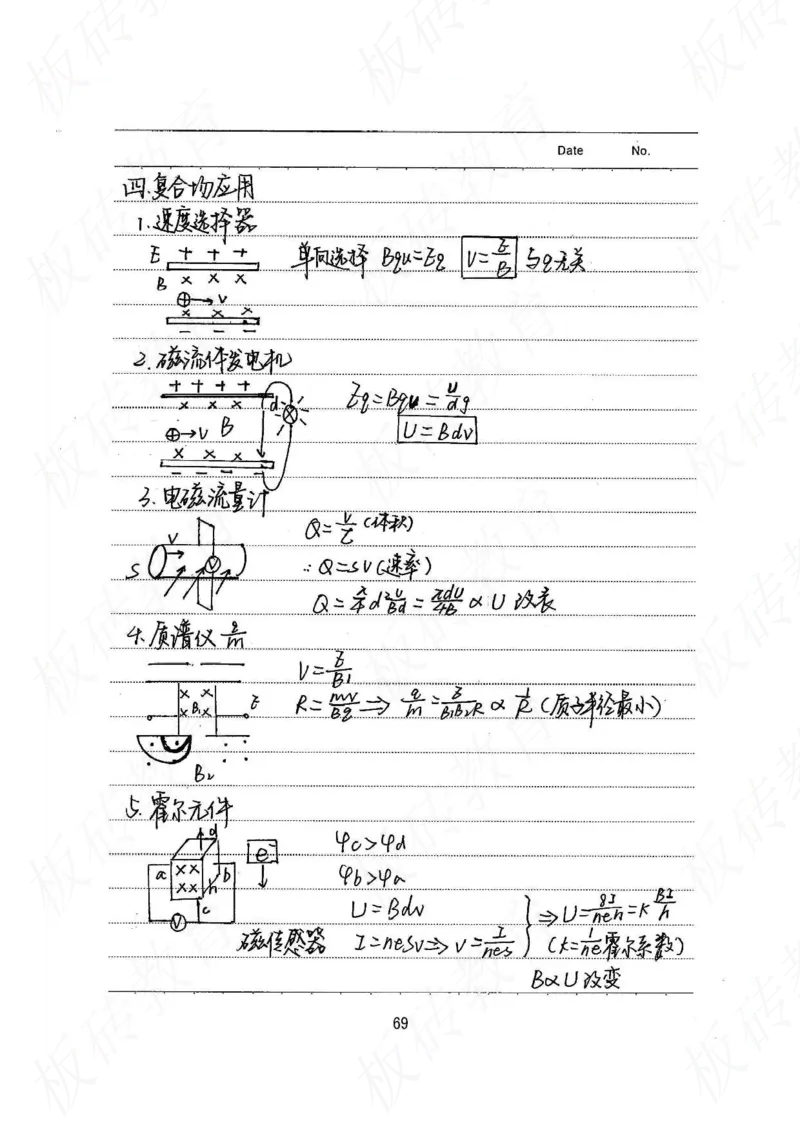 Date No.
四.复合场应用
1.速度选择器
E + + +
B × × ×
⊕→v
× × ×
− − −
单向选择 Bqv=Eq v=E/B 与q无关
2.磁流体发电机
+ + + +
× × × d
⊕→v B
× × ×
− − − −
Eq=Bqv=u/d q
U=Bdv
3.电磁流量计
v
S V
Q=V/t (体积)
∴Q=sv(速率)
Q=π/4 d² u/Bd=πdu/4B ∝ U 改表
4.质谱仪 q/m
× ×
× B₁ × E
B₂
v=E/B₁
R=mv/Bq ⇒ q/m=E/B₁B₂R ∝ 1/R (质子半径最小)
5.霍尔元件
d
a × × b
× × h
c
V
e⁻
φc>φd
φb>φa
U=Bdv
磁传感器 I=nesv⇒v=I/nes
⇒U=BI/neh=k BI/h
(k=1/ne霍尔系数)
B∝U 改变
69
板砖教育